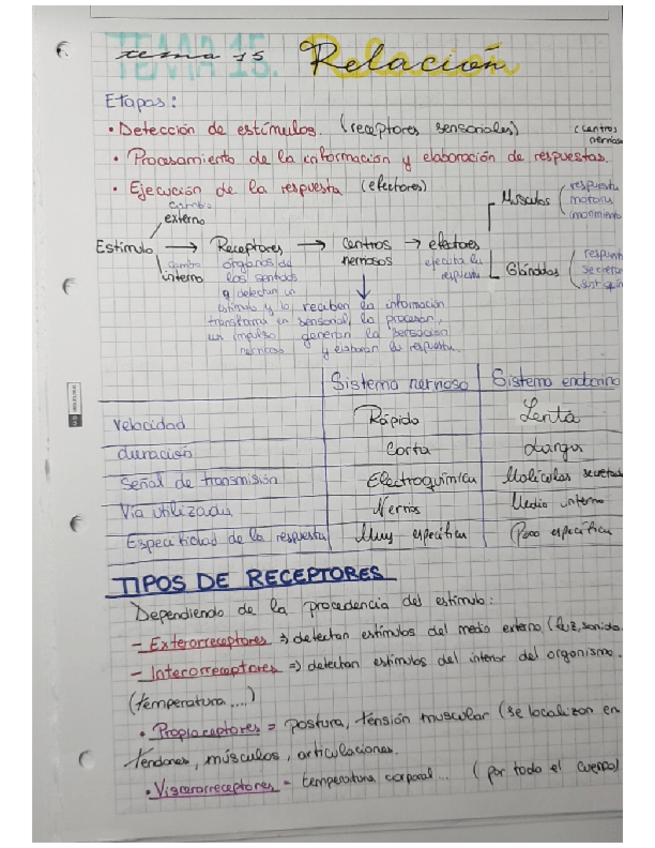 TEMA 15.
tema 15 Relación
Etapas:
• Detección de estímulos. (receptores sensoriales)
(centros
nerviosos
• Procesamiento de la información y elaboración de respuestas.
• Ejecución de la respuesta (efectores)
cambio
externo
Músculos (respuesta
motora
(movimiento
Estímulo → Receptores → centros → efectores
nerviosos
cambio
interno
órganos de
los sentidos
q detectan un
estímulo y lo
transforma en
un impulso
nervioso
ejecuta la
respuesta
Glándulas (respuest
secretor
reciben la información
sensorial, la procesan,
generan la sensación
y elaboran la respuesta.
Sistema nervioso Sistema endocrino
Velocidad Rápida Lenta
duración Corta Larga
Señal de transmisión Electroquímica Moléculas secretad
Vía utilizada Nervios Medio interno
Especificidad de la respuesta Muy específica Poco específica
TIPOS DE RECEPTORES
Dependiendo de la procedencia del estímulo:
- Exterorreceptores => detectan estímulos del medio externo (luz, sonido.
- Interorreceptores => detectan estímulos del interior del organismo.
(temperatura ....)
• Propioceptores = postura, tensión muscular (se localizan en
tendones, músculos, articulaciones.
• Viscerorreceptores = temperatura corporal... (por todo el cuerpo)